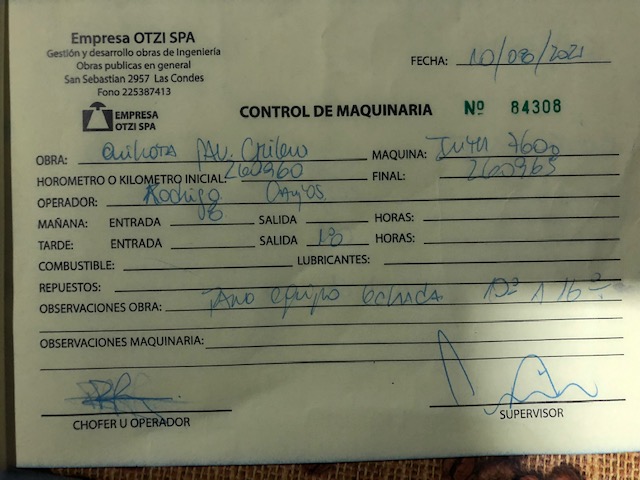 Empresa OTZI SPA
Gestión y desarrollo obras de Ingeniería
Obras publicas en general
San Sebastian 2957 Las Condes
Fono 225387413
FECHA: 10/08/2021
EMPRESA
OTZI SPA
CONTROL DE MAQUINARIA Nº 84308
OBRA: Chilena MAQUINA: 7600
HOROMETRO O KILOMETRO INICIAL: 260960 FINAL: 260963
OPERADOR: Rodrigo
MAÑANA: ENTRADA 08 SALIDA HORAS:
TARDE: ENTRADA SALIDA 18 HORAS:
COMBUSTIBLE: LUBRICANTES:
REPUESTOS:
OBSERVACIONES OBRA: equipo
OBSERVACIONES MAQUINARIA:
CHOFER U OPERADOR
SUPERVISOR